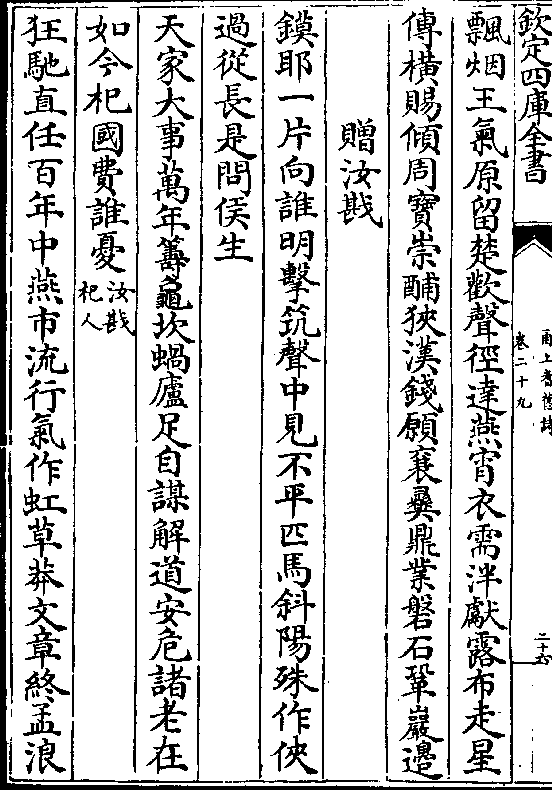 欽定四庫全書
甬上耆舊詩
卷二十九
二十六
飄烟王氣原留楚歡聲徑達燕宵衣需泮獻露布走星
傳橫賜傾周寶崇酺狹漢錢願襄彞鼎業磐石鞏巖邉
贈汝戡
鏌耶一片向誰明擊筑聲中見不平匹馬斜陽殊作俠
過從長是問侯生
天家大事萬年籌龜坎蝸廬足自謀解道安危諸老在
如今杞國費誰憂汝戡杞人
狂馳直任百年中燕市流行氣作虹草莽文章終孟浪